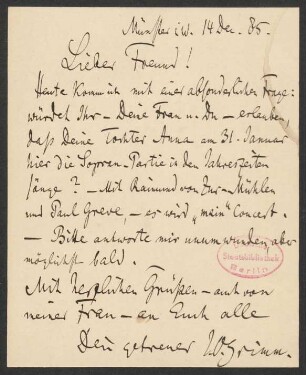 Münster i/W. 14 Dec. 85.
Lieber Freund!
Heute komm' ich mit einer absonderlichen Frage:
würdet Ihr – Deine Frau u. Du – erlauben,
daß Deine Tochter Anna am 31. Januar
hier die Sopran-Partie in den Jahreszeiten
sänge? – Mit Raimund von Zur-Mühlen
und Paul Greve, – es wird „mein" Concert.
– Bitte antworte mir unumwunden, aber
möglichst bald.
Berlin
Mit herzlichen Grüßen – auch von
meiner Frau – an Euch alle
Dein getreuer JO. Grimm.